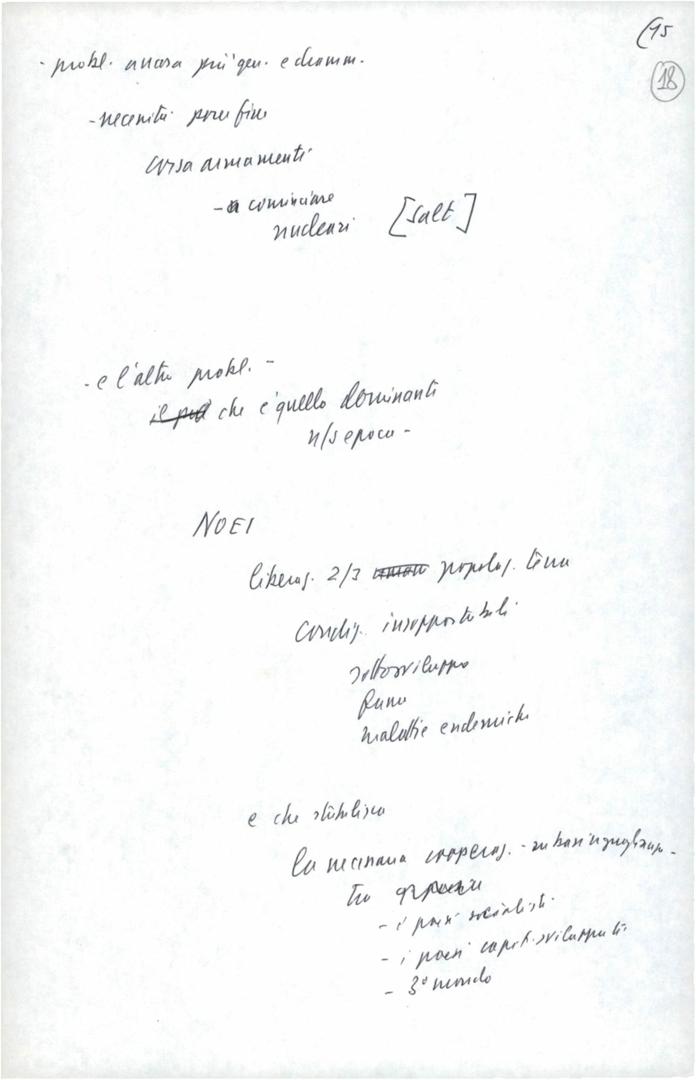 (95
18
- probl. ancora più gen. e dramm.
- necessità porre fine
corsa armamenti
- a cominciare
nucleari [Salt]
- e l'altro probl. -
che è quello dominante
n/s epoca -
NOEI
liberaz. 2/3 popolaz. terra
condiz. insopportabili
sottosviluppo
fame
malattie endemiche
e che stabilisca
la necessaria cooperaz. - su basi eguaglianza -
tra
- i paesi socialisti
- i paesi capit. sviluppati
- 3° mondo